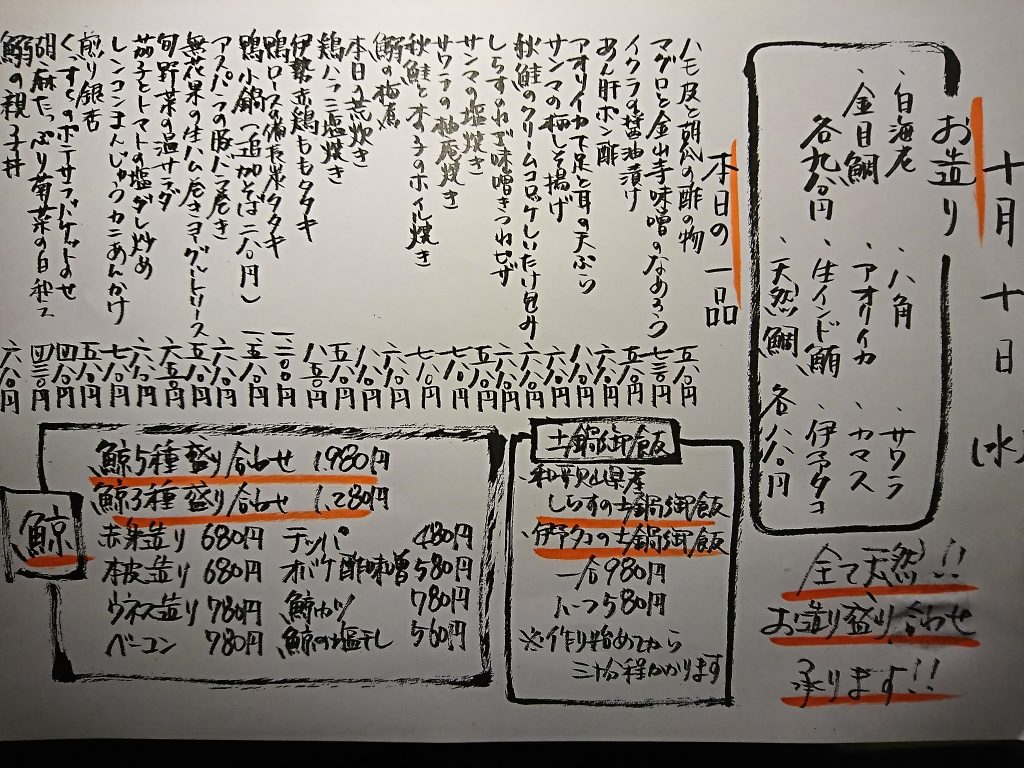 十月十日
お造り
・白海老
・金目鯛
各九八〇円
・八角
・アオリイカ
・生インド鮪
・天然鯛
・サワラ
・カマス
・伊予タコ
各八八〇円
全て天然!!
お造り盛り合わせ
承ります!!
本日の一品
ハモ皮と胡瓜の酢の物 五八〇円
マグロと金山寺味噌のなめろう 七三〇円
イクラの醤油漬け 五八〇円
あん肝ポン酢 六八〇円
アオリイカ下足と耳の天ぷら 八八〇円
サンマの梅しそ揚げ 六八〇円
秋鮭のクリームコロッケしいたけ包み 六八〇円
しらすのねぎ味噌きつねピザ 五八〇円
サンマの塩焼き 七八〇円
サワラの柚庵焼き 七八〇円
秋鮭と木の子のホイル焼き
鰯の梅煮
本日の荒炊き
鶏ハツ塩焼き 五八〇円
伊勢赤鶏ももタタキ 八五〇円
鴨ロースの備長炭タタキ
鴨小鍋(追加そば二八〇円)
アスパラの豚バラ巻き 六八〇円
無花果の生ハム巻きヨーグルトソース
旬野菜の温サラダ 六五〇円
茄子とトマトの塩ダレ炒め 六八〇円
レンコンまんじゅうカニあんかけ 七八〇円
煎り銀杏 五八〇円
くんせいのポテサラバケットのせ 四八〇円
胡麻たっぷり菊菜の白和え 四三〇円
鰯の親子丼 六八〇円
土鍋御飯
・和歌山県産
しらすの土鍋御飯
・伊予タコの土鍋御飯
一合980円
ハーフ580円
※作り始めてから
三十分程かかります
鯨
鯨5種盛り合わせ 1,980円
鯨3種盛り合わせ 1,280円
赤身造り 680円 テッパ 480円
本皮造り 680円 オバケ酢味噌 580円
ウネス造り 780円 鯨カツ 780円
ベーコン 780円 鯨の塩干し 560円